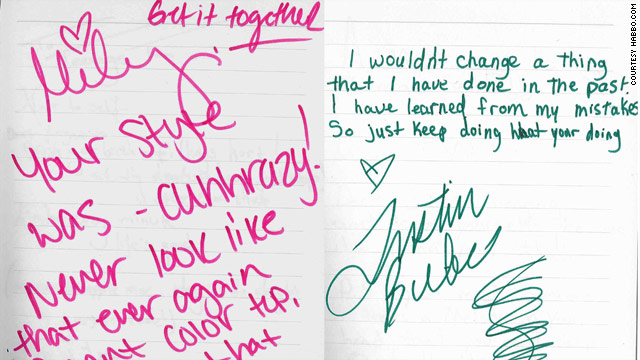 Get it together
Miley
Your style
was - cuhhrazy!
Never look like
that ever again
color top,
that
I wouldn't change a thing
that I have done in the past.
I have learned from my mistakes
So just keep doing what your doing
Justin
Bieber
COURTESY HABBO.COM